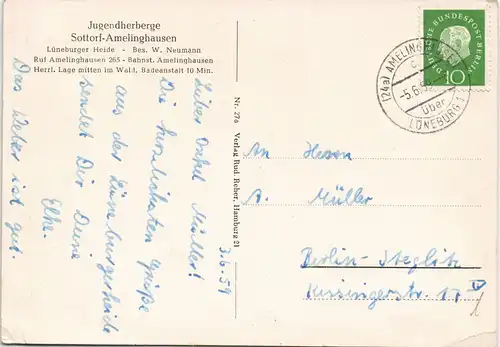 Jugendherberge
Sottorf-Amelinghausen
Lüneburger Heide - Bes. W. Neumann
Ruf Amelinghausen 265 - Bahnst. Amelinghausen
Herrl. Lage mitten im Wald, Badeanstalt 10 Min.
3.6.59
Lieber Onkel Müller!
Die herzlichsten Grüße
aus der Lüneburgerheide
sendet Dir Deine
Elke.
Das Wetter ist gut.
Nr. 27a Verlag Rud. Reher, Hamburg 21
DEUTSCHE BUNDESPOST BERLIN
10
(24a) AMELING
-5.6.59
Über
LÜNEBURG 1
An Herrn
A. Müller
Berlin-Steglitz
Kissingerstr. 17 IV